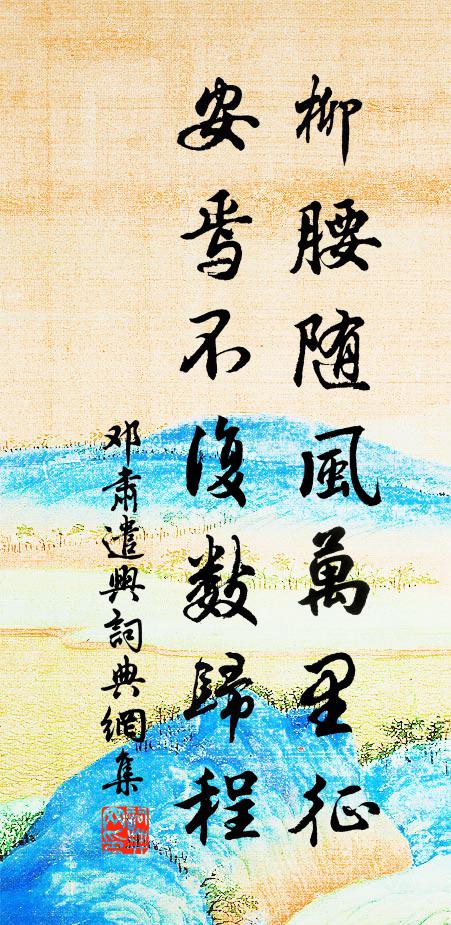 柳腰随風萬里征
安焉不復數歸程
邓肅遣興詞典網集